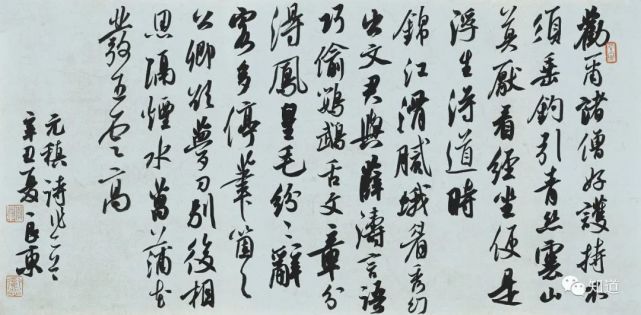 勸爾諸僧好護持不
須垂釣引青絲雲山
莫厭看經坐便是
浮生得道時
錦江滑膩蛾眉秀幻
出文君與薛濤言語
巧偷鸚鵡舌文章分
得鳳皇毛紛〻辭
客多停筆箇〻
公卿欲夢刀別後相
思隔煙水菖蒲花
發五雲高
元稹詩
辛丑夏良東
知道